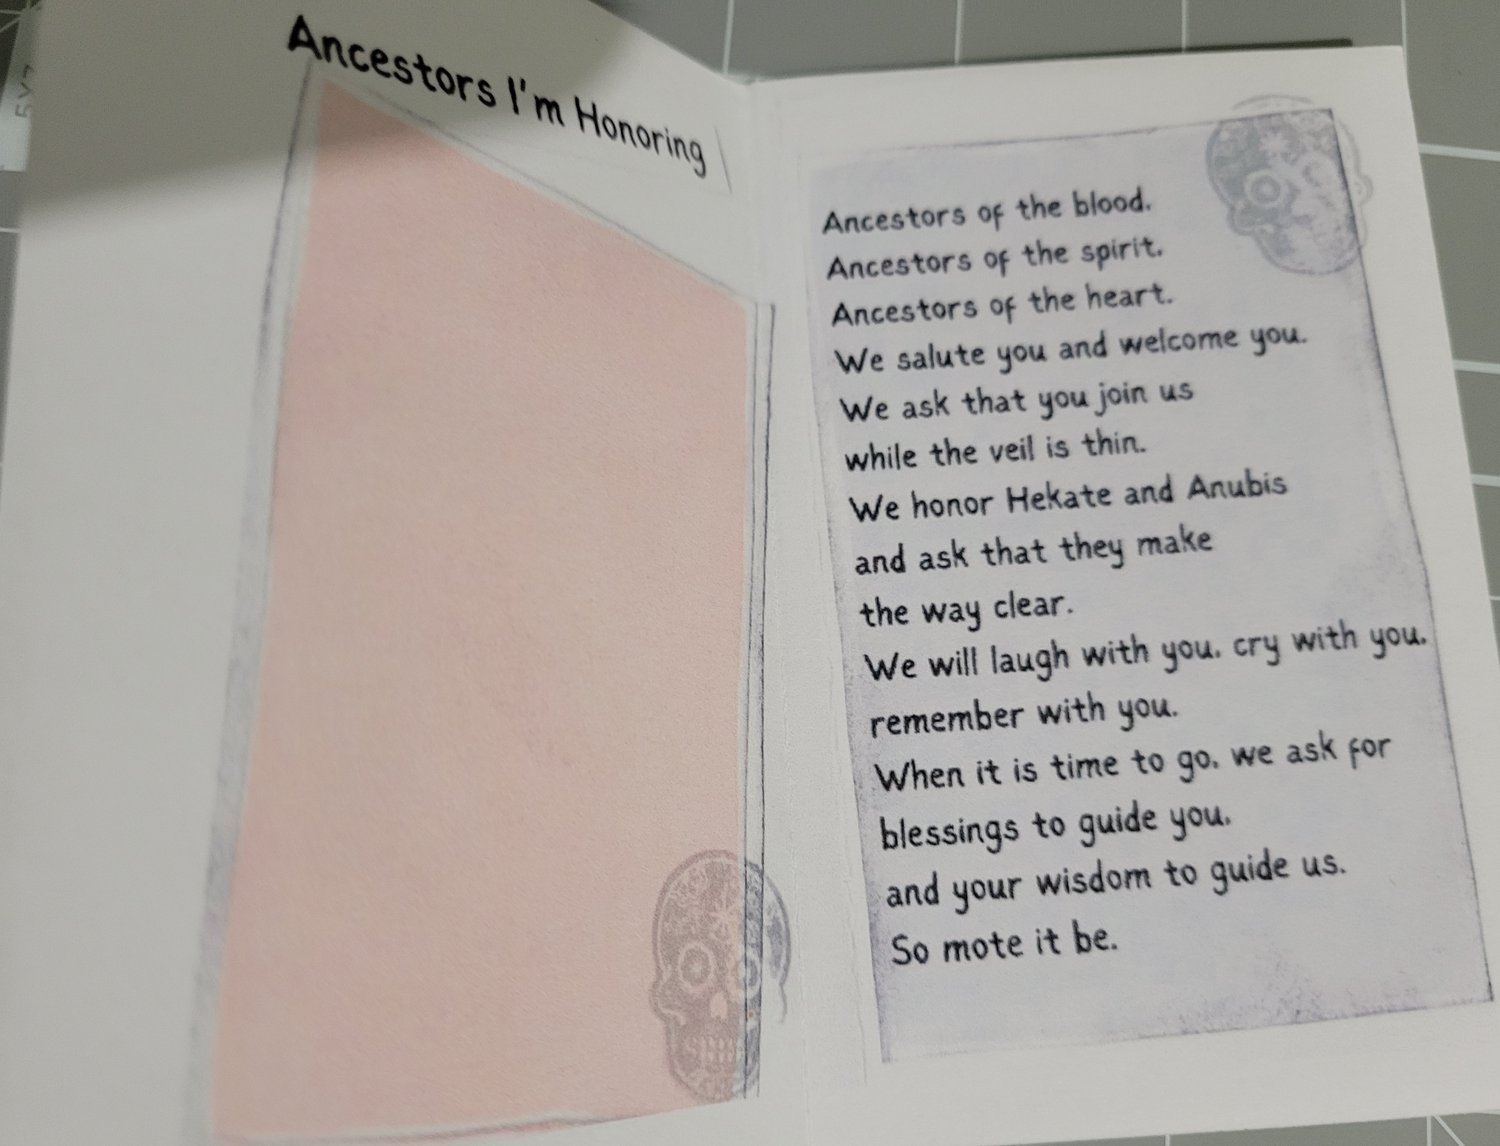 Ancestors I'm Honoring
Ancestors of the blood.
Ancestors of the spirit.
Ancestors of the heart.
We salute you and welcome you.
We ask that you join us
while the veil is thin.
We honor Hekate and Anubis
and ask that they make
the way clear.
We will laugh with you, cry with you,
remember with you.
When it is time to go, we ask for
blessings to guide you,
and your wisdom to guide us.
So mote it be.